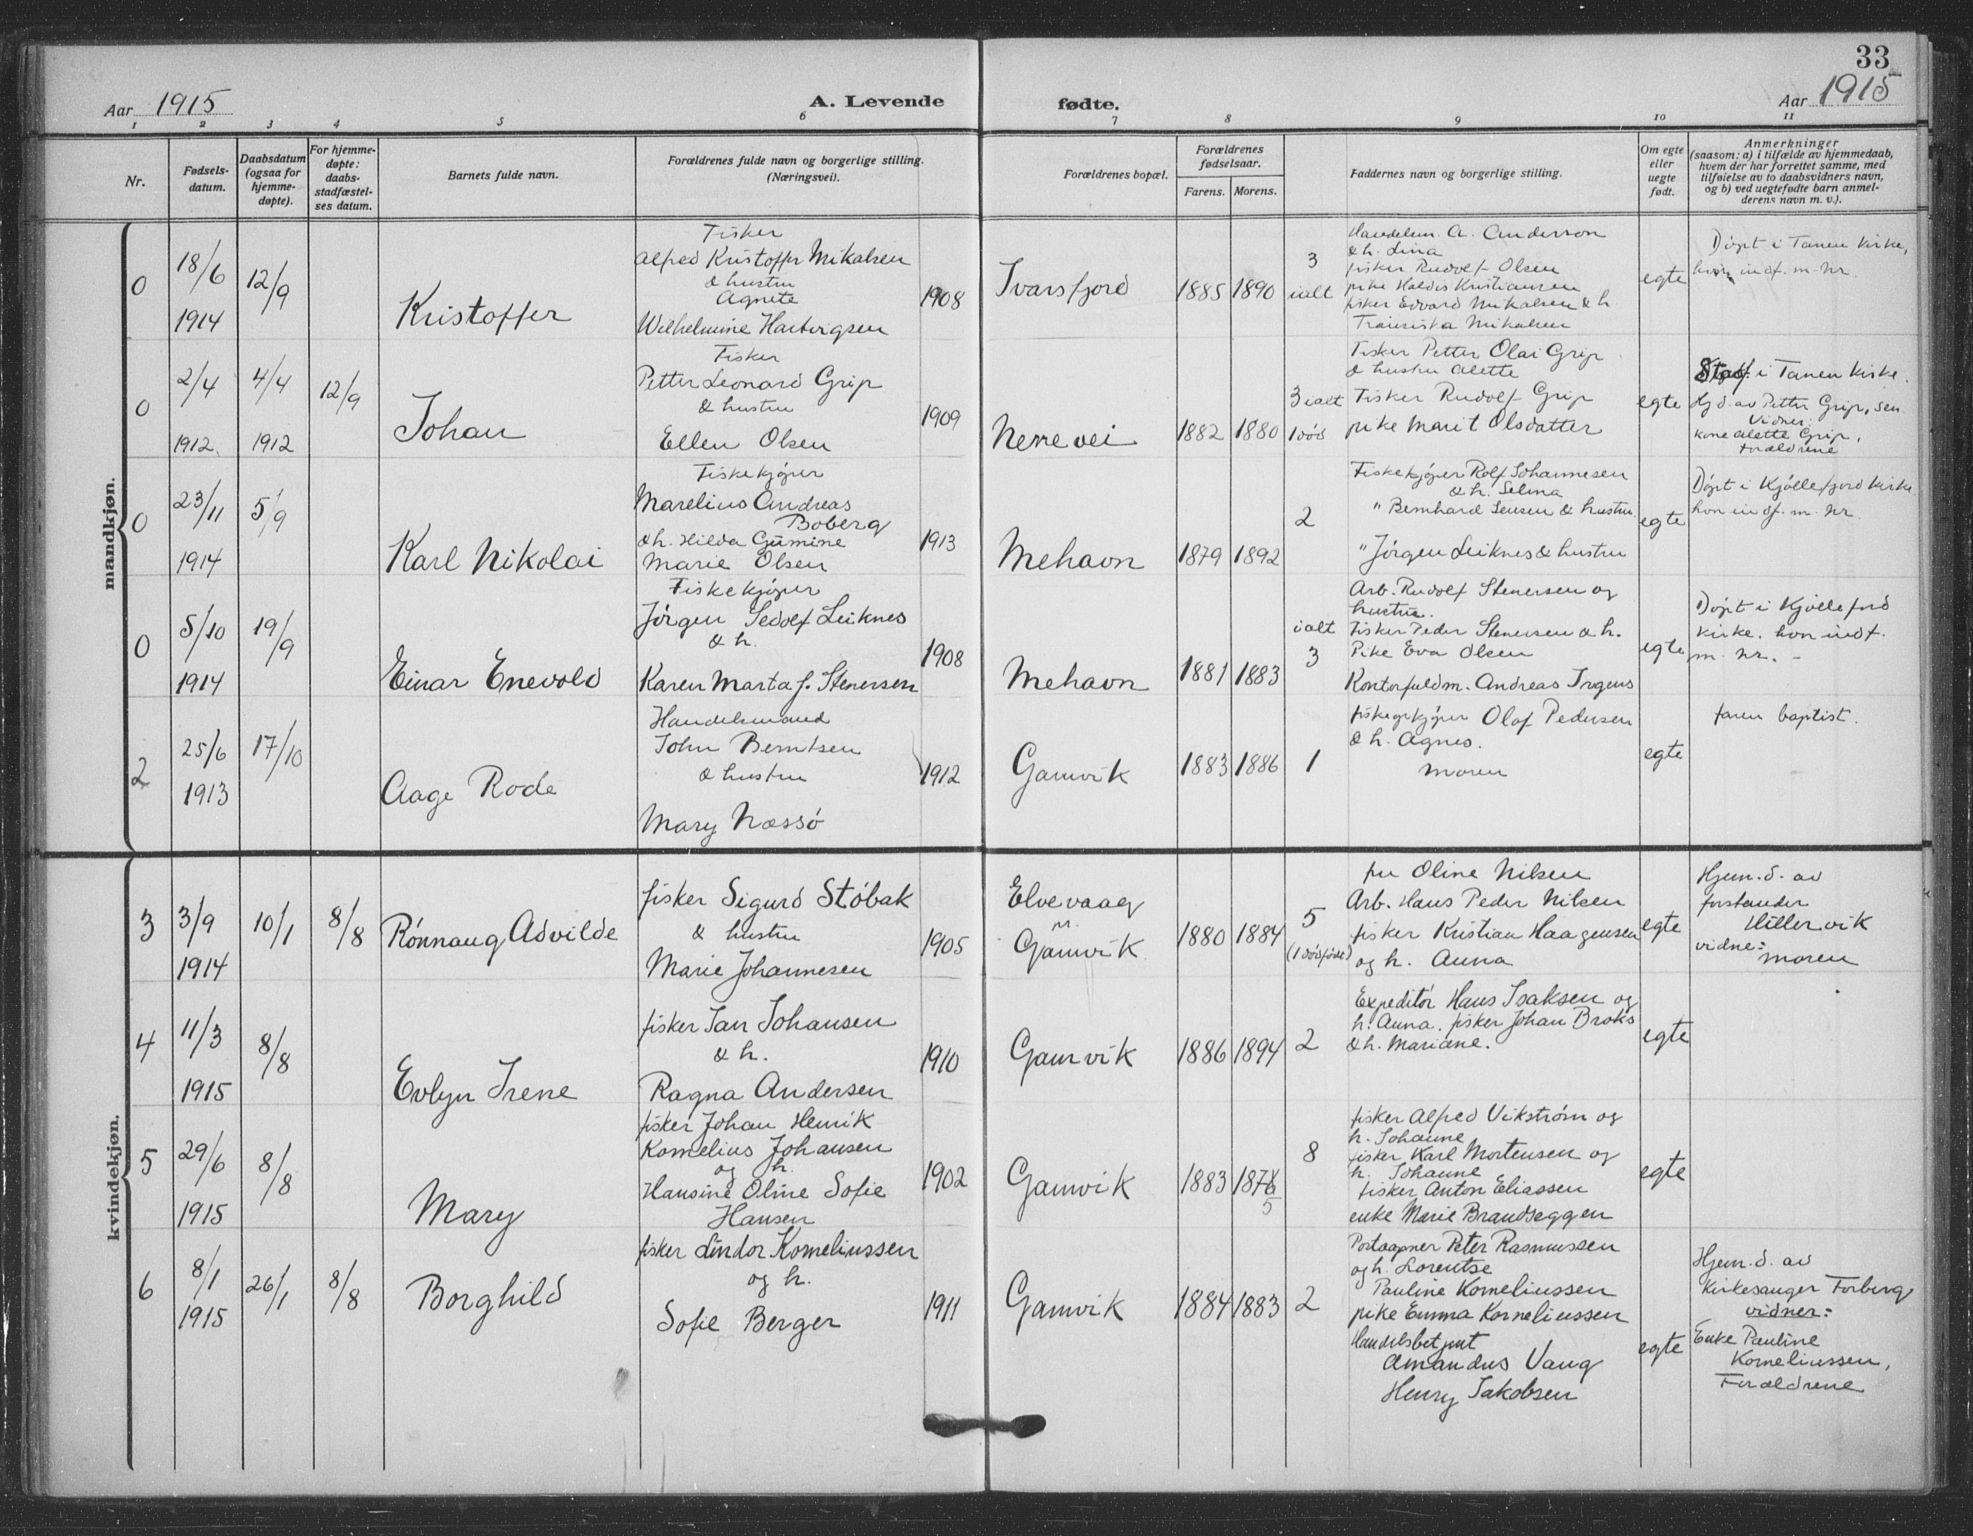 33
Aar 1915
A. Levende
fødte.
Aar 1915
1 2 3 4 5 6 7 8 9 10 11
Nr.
Fødsels-
datum.
Daabsdatum
(ogsaa for
hjemme-
døpte).
For hjemme-
døpte:
daabs-
stadfæstel-
ses datum.
Barnets fulde navn.
Forældrenes fulde navn og borgerlige stilling.
(Næringsvei).
Forældrenes bopæl.
Forældrenes
fødselsaar.
Farens. Morens.
Faddernes navn og borgerlige stilling.
Om egte
eller
uegte
født.
Anmerkninger
(saasom: a) i tilfælde av hjemmedaab,
hvem der har forrettet samme, med
tilføielse av to daabsvidners navn,
og b) ved uegtefødte barn anmel-
derens navn m. v.).
mandkjøn.
0
18/6
1914
12/9
Kristoffer
Fisker
Alfred Kristoffer Mikalsen
& hustru
Agnete
Wilhelmine Hartvigsen
1908
Ivarsfjord
1885 1890
3
ialt
Handelsm. A. Anderson
& h. Lina
fisker Rudolf Olsen
pike Haldis Kristiansen
fisker Edvard Mikalsen & h
Fransiska Mikalsen
egte
Døpt i Tanen Kirke,
hvor indf. m. Nr.
0
2/4
1912
4/4
1912
12/9
Johan
Fisker
Petter Leonard Grip
& hustru
Ellen Olsen
1909
Nerrevei
1882 1880
3 ialt
1 død
Fisker Petter Olai Grip
& hustru Alette
Fisker Rudolf Grip
pike Marit Olsdatter
egte
Stadf. i Tanen Kirke.
Hj d. av Petter Grip, sen
Vidner:
kone Alette Grip,
Forældrene
0
23/11
1914
5/9
Karl Nikolai
Fiskekjøper
Marelius Andreas
Boberg
& h. Hilda Gumine
Marie Olsen
1913
Mehavn
1879 1892
2
Fiskekjøper Rolf Johannesen
& h. Selma
" Bernhard Jensen & hustru
" Jørgen Leiknes & hustru
egte
Døpt i Kjøllefjord Kirke
hvor indf. m. Nr.
0
5/10
1914
19/9
Einar Enevold
Fiskekjøper
Jørgen Sedolf Leiknes
& h.
Karen Marta f. Stenersen
1908
Mehavn
1881 1883
ialt
3
Arb. Rudolf Stenersen og
hustru.
Fisker Peder Stenersen & h.
Pike Eva Olsen
Kontorfuldm. Andreas Irgens
egte
Døpt i Kjøllefjord
Kirke. hvor indf.
m. Nr. -
2
25/6
1913
17/10
Aage Rode
Handelsmand
John Berntsen
& hustru
Mary Næssø
1912
Gamvik
1883 1886
1
fiskeopkjøper Olaf Pedersen
& h. Agnes.
Moren
egte
faren baptist.
kvindekjøn.
3
3/9
1914
10/1
8/8
Rønnaug Advilde
fisker Sigurd Støbak
& hustru
Marie Johannesen
1905
Elvevaag
Gamvik
1880 1884
5
(1 dødfødt)
fru Oline Nilsen
Arb. Hans Peder Nilsen
fisker Kristian Haagensen
og h. Anna
egte
Hjem. d. av
forstander
Hillervik
vidne:
moren
4
11/3
1915
8/8
Evlyn Irene
fisker Jan Johansen
& h.
Ragna Andersen
1910
Gamvik
1886 1894
2
Expeditør Hans Isaksen og
h. Anna. fisker Johan Broks
& h. Mariane.
egte
5
29/6
1915
8/8
Mary
fisker Johan Henrik
Kornelius Johansen
og h.
Hansine Oline Sofie
Hansen
1902
Gamvik
1883
8
fisker Alfred Vikstrøm og
h. Johanne
fisker Karl Mortensen og
h. Johanne
fisker Anton Eliassen
enke Marie Brandseggen
egte
6
8/1
1915
26/1
8/8
Borghild
fisker Lindor Korneliussen
og h.
Sofie Berger
1911
Gamvik
1884 1883
2
Postaapner Peter Rasmussen
og h. Lorentse
Pauline Korneliussen
pike Emma Korneliussen
Handelsbetjent
Amandus Vang
Henry Jakobsen
egte
Hjem. d. av
Kirkesanger Forberg
vidner:
Enke Pauline
Korneliussen,
Forældrene